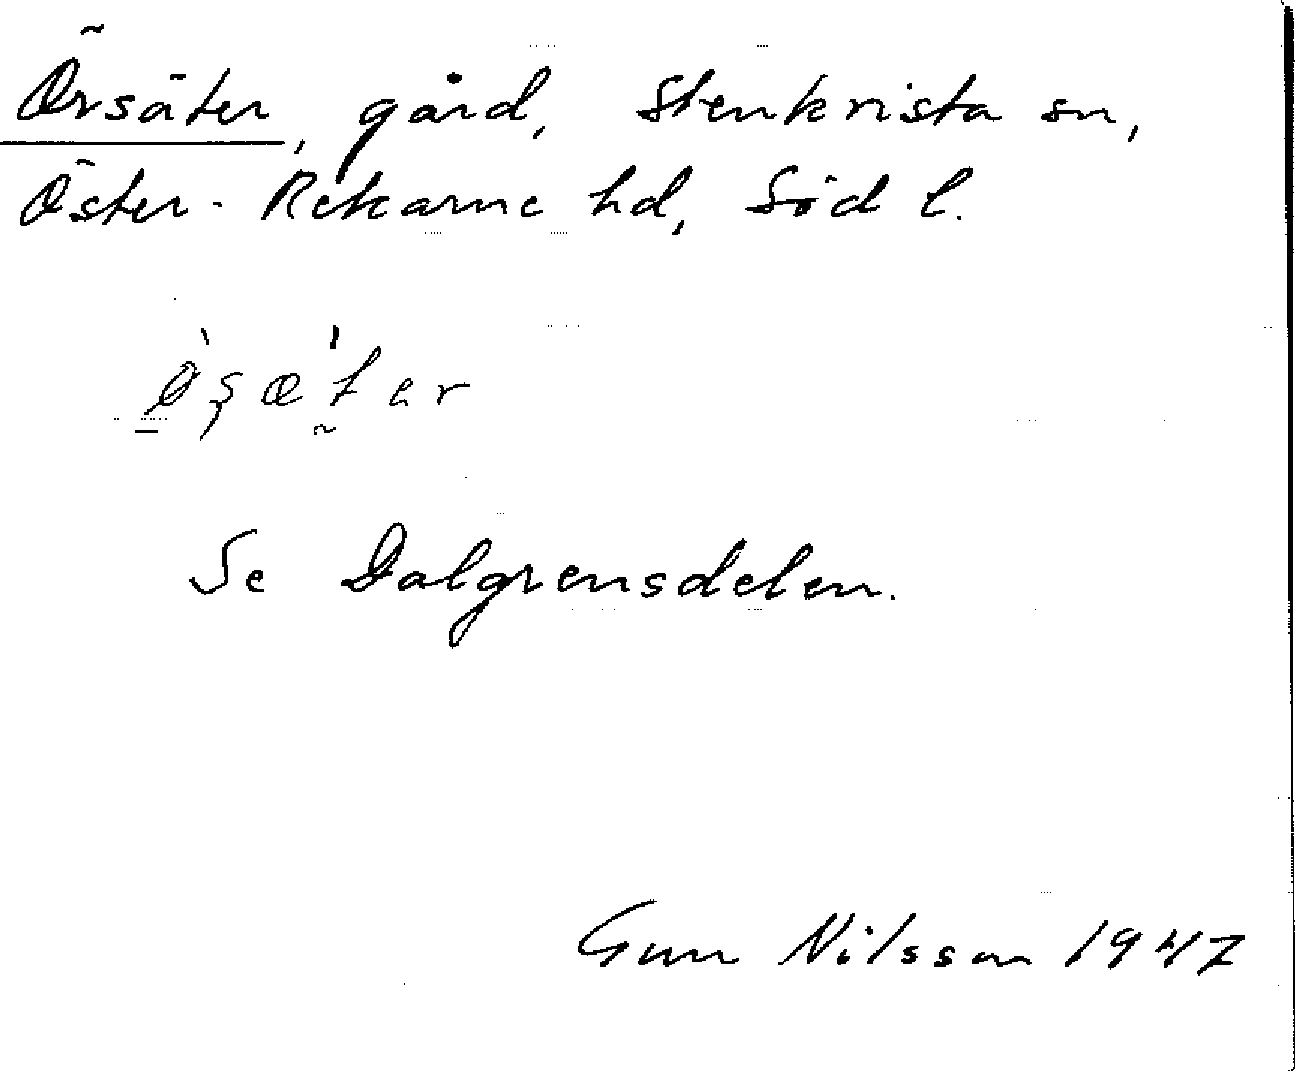 Örsäter, gård, Stenkvista sn,
Öster-Rekarne hd, Söd l.
Se Dalgrensdelen.
Gun Nilsson 1947